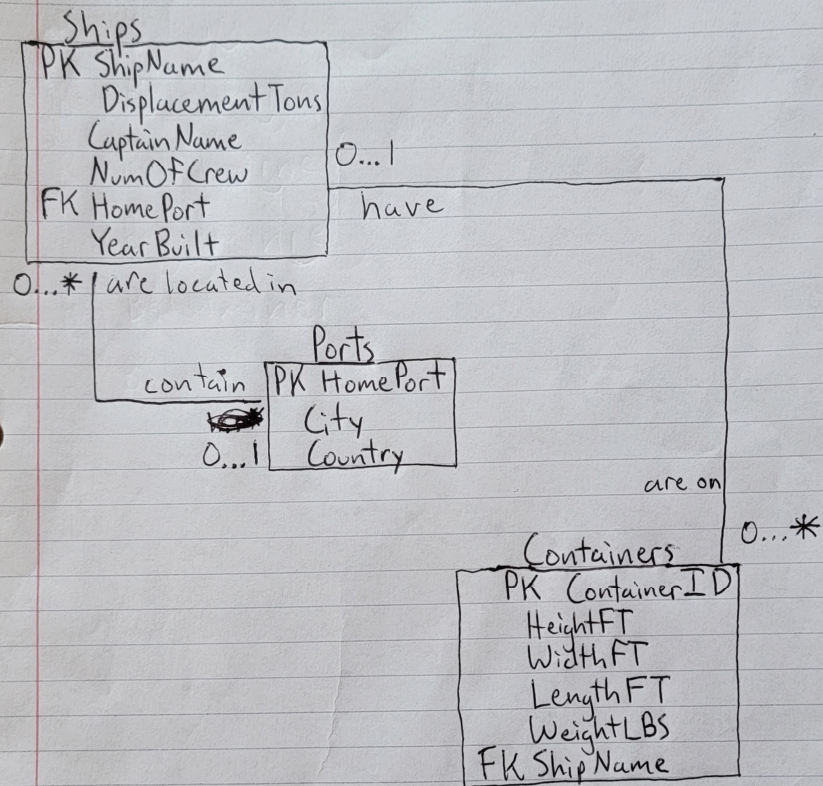 Ships
PK ShipName
DisplacementTons
CaptainName
NumOfCrew
0...1
FK HomePort
have
YearBuilt
0...* are located in
Ports
contain
PK HomePort
City
0...1
Country
are on
0...*
Containers
PK ContainerID
HeightFT
WidthFT
LengthFT
WeightLBS
FK ShipName